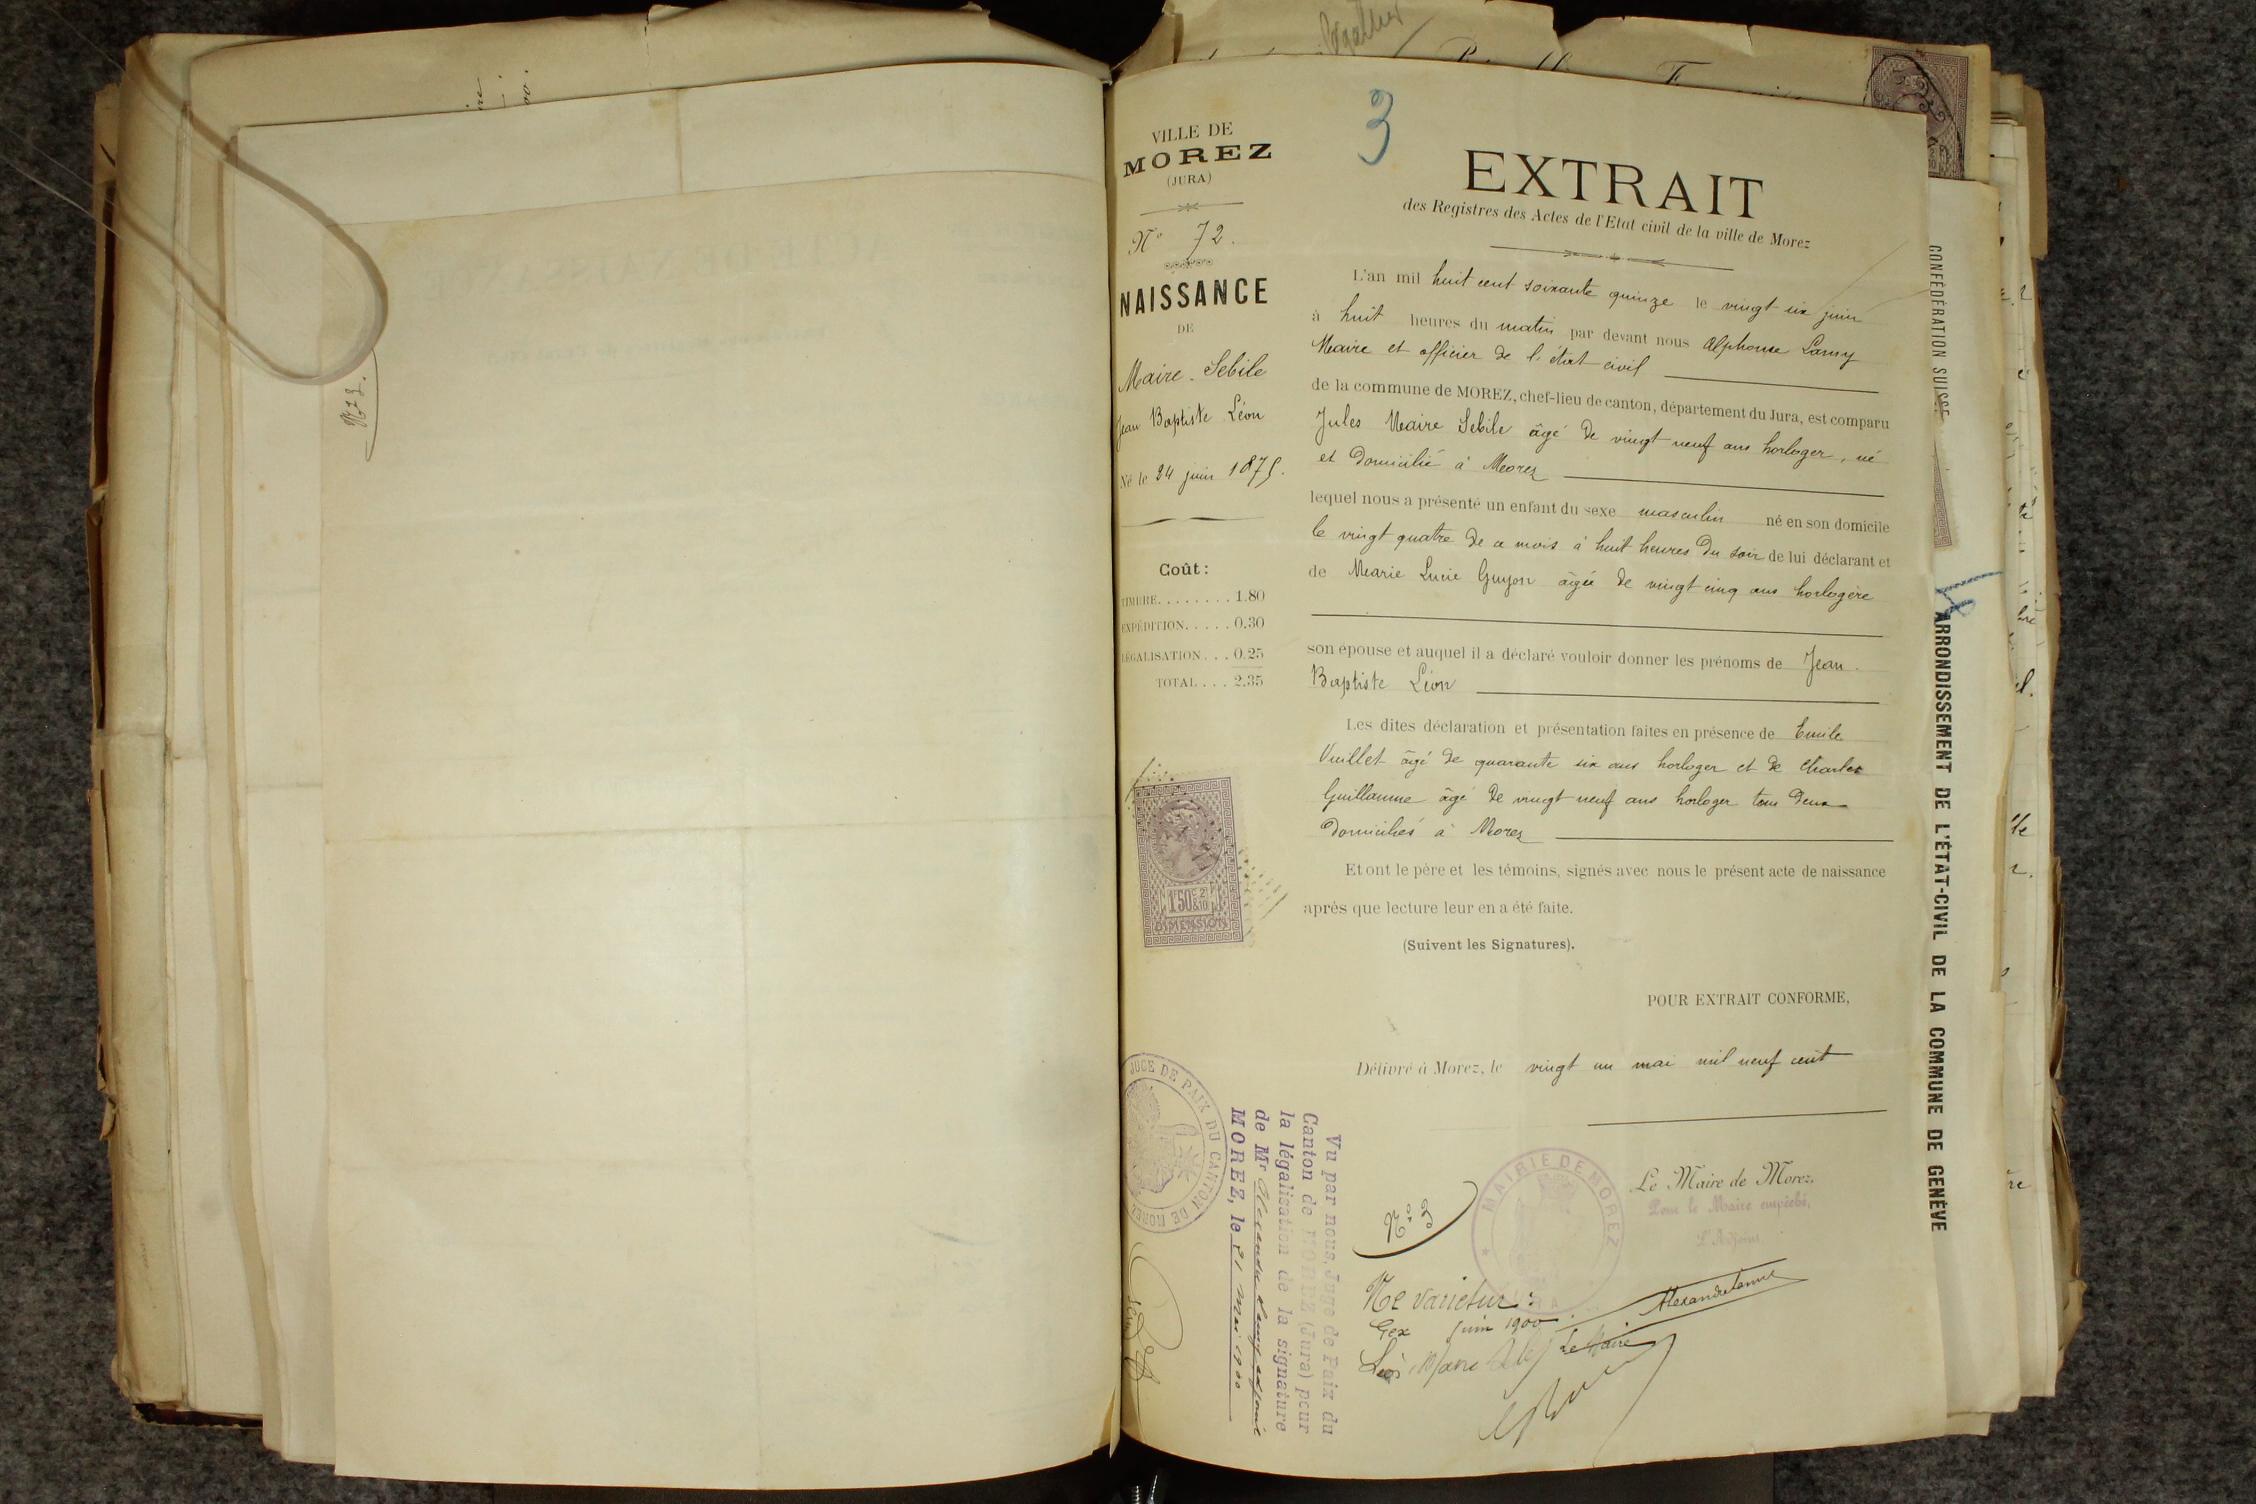 N° 3.
3
VILLE DE
MOREZ
(JURA)
N° 72.
NAISSANCE
DE
Maire-Sebile
Jean Baptiste Léon
Né le 24 juin 1875.
Coût:
TIMBRE........1.80
EXPÉDITION.....0.30
LÉGALISATION...0.25
TOTAL....2.35
1F50C 2/10
DIMENSION
JUGE DE PAIX DU CANTON DE MOREZ
EXTRAIT
des Registres des Actes de l'Etat civil de la ville de Morez
L'an mil huit cent soixante quinze le vingt six juin
à huit heures du matin par devant nous Alphonse Lamy
Maire et officier de l'état civil
de la commune de MOREZ, chef-lieu de canton, département du Jura, est comparu
Jules Maire Sebile âgé de vingt neuf ans horloger, né
et domicilié à Morez
lequel nous a présenté un enfant du sexe masculin né en son domicile
le vingt quatre de ce mois à huit heures du soir de lui déclarant et
de Marie Lucie Guyon âgée de vingt cinq ans horlogère
son épouse et auquel il a déclaré vouloir donner les prénoms de Jean
Baptiste Léon
Les dites déclaration et présentation faites en présence de Emile
Vuillet âgé de quarante six ans horloger et de Charles
Guillaume âgé de vingt neuf ans horloger tous deux
domiciliés à Morez
Et ont le père et les témoins, signés avec nous le présent acte de naissance
après que lecture leur en a été faite.
(Suivent les Signatures).
POUR EXTRAIT CONFORME,
Délivré à Morez, le vingt un mai mil neuf cent
Le Maire de Morez,
Pour le Maire empêché,
L'Adjoint
MAIRIE DE MOREZ
JURA
N° 3
Ne varietur:
Gex juin 1900.
Léon Maire
Le Maire
Vu par nous, Juge de Paix du
Canton de MOREZ (Jura) pour
la légalisation de la signature
de Mr Alexandre Lamy adjoint
MOREZ, le 21 Mai 1900
CONFÉDÉRATION SUISSE
4
ARRONDISSEMENT DE L'ÉTAT-CIVIL DE LA COMMUNE DE GENÈVE